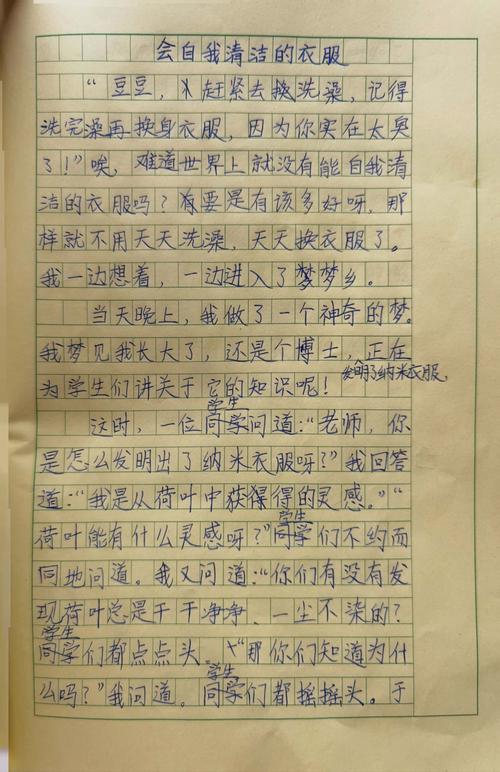 会自我清洁的衣服
“豆豆，赶紧去换洗澡，记得
洗完澡再换身衣服，因为你实在太臭
了！”唉，难道世界上就没有能自我清
洁的衣服吗？有要是有该多好呀，那
样就不用天天洗澡，天天换衣服了。
我一边想着，一边进入了梦梦乡。
当天晚上，我做了一个神奇的梦。
我梦见我长大了，还是个博士，正在
发明了纳米衣服，
为学生们讲关于它的知识呢！
学生
这时，一位同学问道：“老师，你
是怎么发明出了纳米衣服呀？”我回答
道：“我是从荷叶中获得得的灵感。”“
学生
荷叶能有什么灵感呀？”同学们不约而
同地问道。我又问道：“你们有没有发
现荷叶总是干干净净、一尘不染的？
学生
同学们都点点头。“那你们知道为什
学生
么吗？”我问道。同学们都摇摇头。于